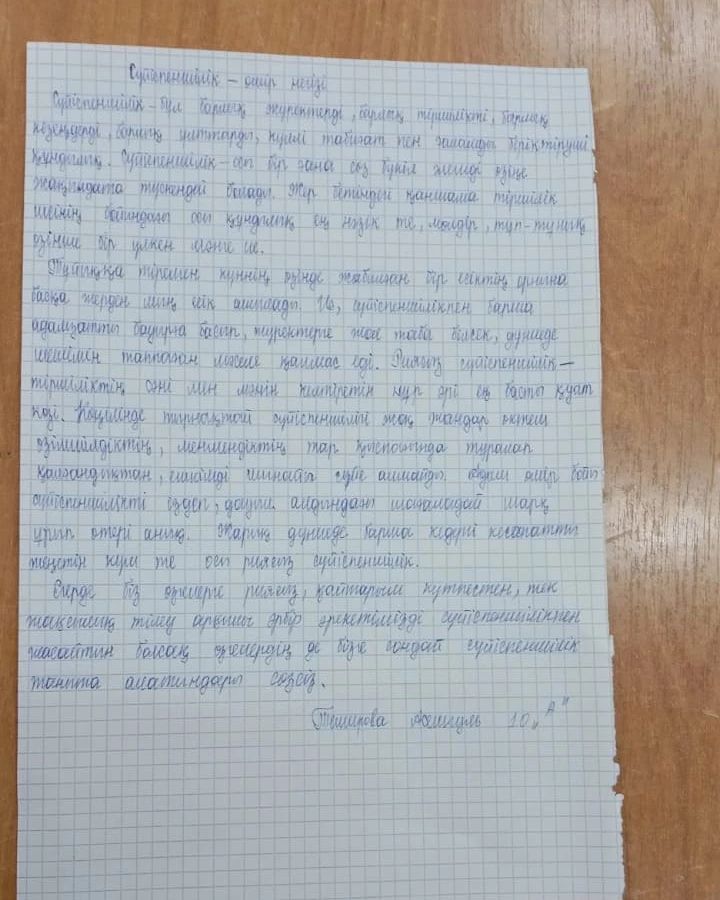 Сүйіспеншілік – өмір негізі
Сүйіспеншілік – бұл барлық жүректерді, барлық тіршілікті, барлық
кезеңдерді, барлық ұлттарды, күллі табиғат пен ғаламды біріктіруші
құндылық. Сүйіспеншілік – осы бір ғана сөз бүкіл әлемді өзіңе
жақындата түскендей болады. Жер бетіндегі қаншама тіршілік
иесінің бойындағы осы құндылық ең нәзік те, мөлдір, тұп-тұнық
өзінше бір үлкен мәнге ие.
Тұйыққа тірелген күннің өзінде жабылған бір есіктің орнына
басқа жерден мың есік ашылады. Иә, сүйіспеншілікпен барша
адамзатты бауырға басып, жүректерге жол таба білсек, дүниеде
шешімін таппаған мәселе қалмас еді. Риясыз сүйіспеншілік –
тіршіліктің сәні мен мәнін келтіретін нұр әрі ең басты қуат
көзі. Көңілінде тырнақтай сүйіспеншілігі жоқ жандар өктем
өзімшілдіктің, менмендіктің тар қыспағында тұралап
қалғандықтан, ешкімді шынайы сүйе алмайды. Адам өмір бойы
сүйіспеншілікті іздеп, дауыл алдындағы шағаладай шарқ
ұрып өтері анық. Жарық дүниеде барша кедергі кесапатты
жеңетін күш те осы риясыз сүйіспеншілік.
Егерде біз өзгелерге риясыз, қайтарым күтпестен, тек
жақсылық тілеу арқылы әрбір әрекетімізді сүйіспеншілікпен
жасайтын болсақ өзгелердің де бізге сондай сүйіспеншілік
таныта алатындары сөзсіз.
10 „А"